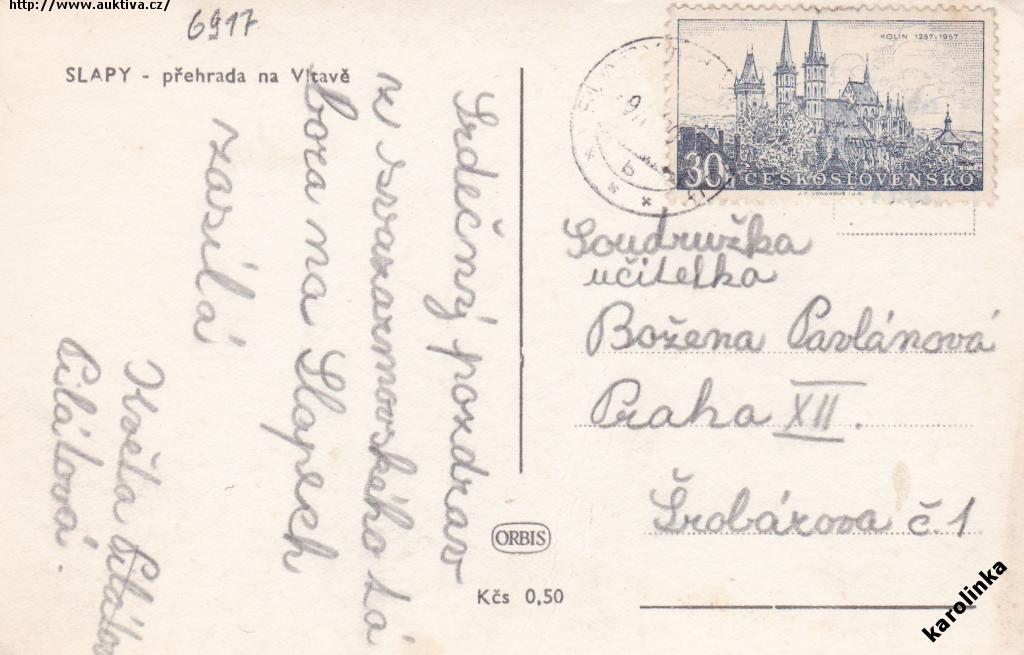 http://www.auktiva.cz/
6917
SLAPY - přehrada na Vltavě
Srdečný pozdrav
ze svazarmovského tá
bora na Slapech
zasílá
Květa Pilátová
Pilátová.
KOLÍN 1257-1957
30h ČESKOSLOVENSKO
Soudružka
učitelka
Božena Pavlánová
Praha XII.
Šrobárova č.1
ORBIS
Kčs 0,50
karolinka